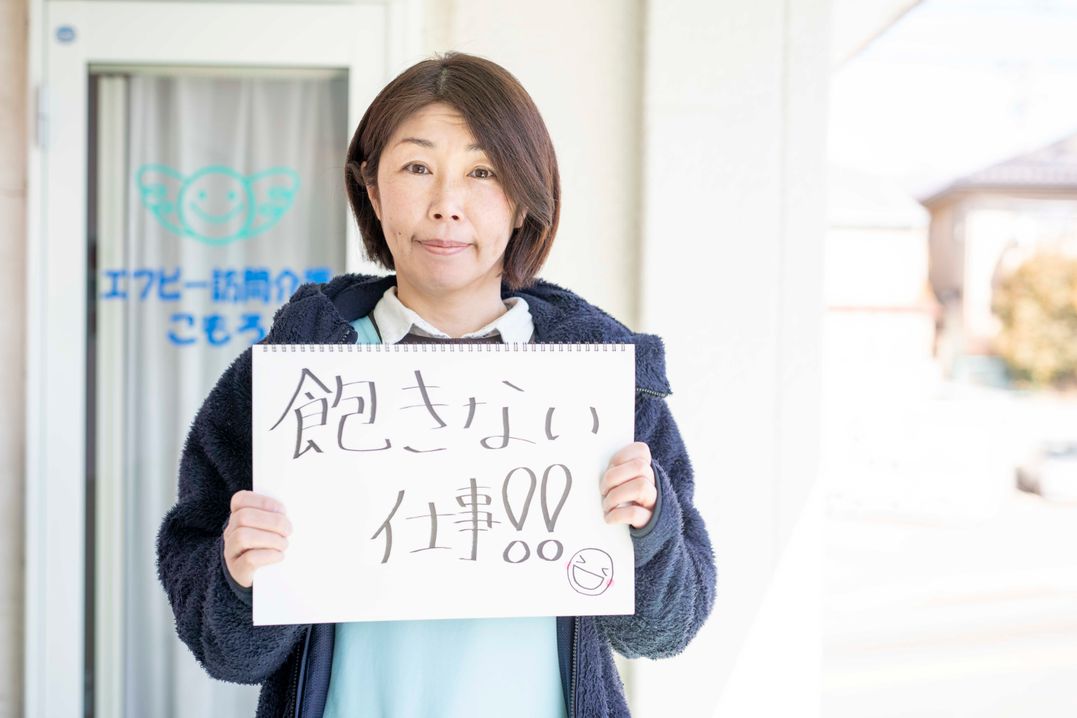 エフピー訪問介護
こもろ
飽きない
仕事!!